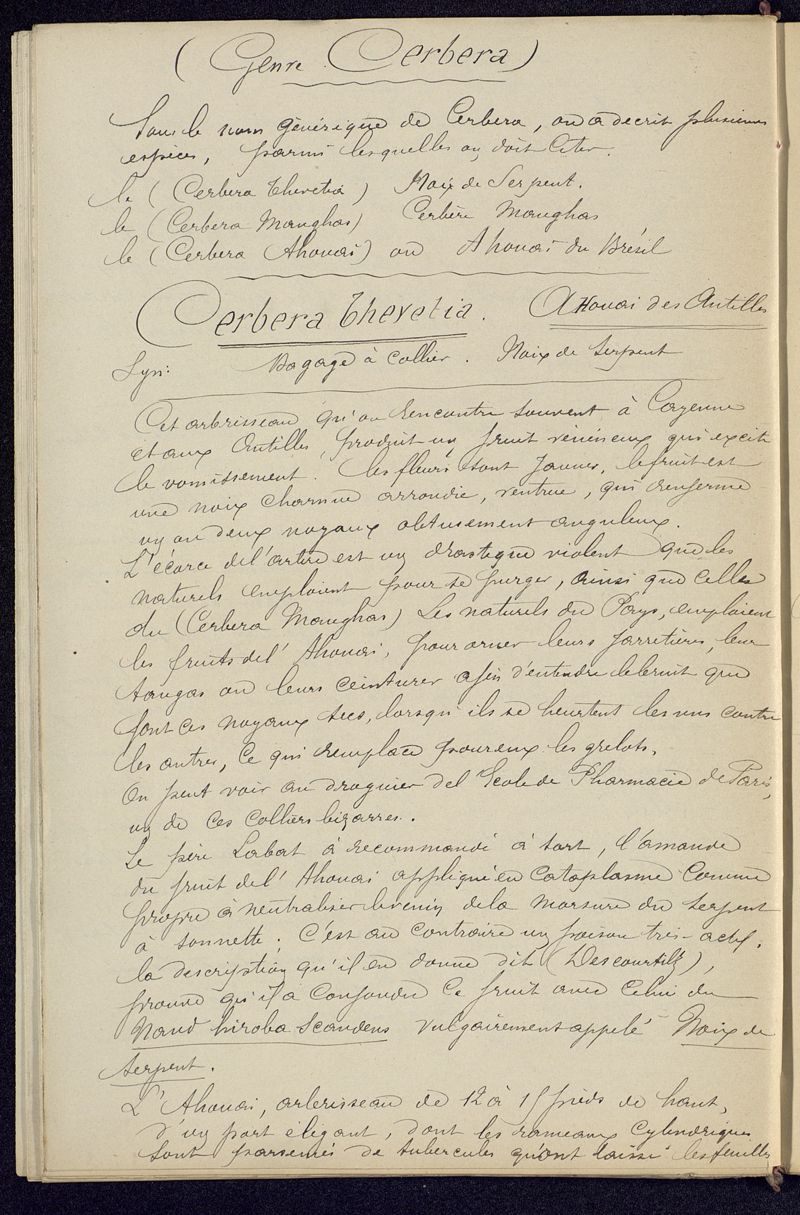 (Genre Cerbera)
Sous le nom générique de Cerbera, on a décrit plusieurs
espèces, parmi lesquelles on doit Citer.
le (Cerbera Thevetia) Noix de Serpent.
le (Cerbera Manghas) Cerbère Manghas
le (Cerbera Ahouai) ou Ahouai du Brésil
Cerbera Thevetia. Ahouai des Antilles
Syn: Bagage à Collier. Noix de Serpent
Cet arbrisseau qu'on rencontre souvent à Cayenne
et aux Antilles, produit un fruit vénéneux qui excite
le vomissement. les fleurs sont Jaunes, le fruit est
une noix charnue arrondie, ventrue, qui renferme
un ou deux noyaux obtusement anguleux.
L'écorce de l'arbre est un drastique violent que les
naturels emploient pour se purger, ainsi que celle
du (Cerbera Manghas) Les naturels du Pays, emploient
les fruits de l'Ahouai, pour orner leurs jarretières, leur
tangas ou leurs ceintures afin d'entendre le bruit que
font ces noyaux secs, lorsqu'ils se heurtent les uns contre
les autres, Ce qui remplace pour eux les grelots.
On peut voir au droguier de l'Ecole de Pharmacie de Paris,
un de ces Colliers bizarres.
Le père Labat à recommandé à tort, l'amande
du fruit de l'Ahouai appliqué en Cataplasme Comme
propre à neutraliser le venin de la morsure du Serpent
à sonnette; C'est au contraire un poison très-actif.
la description qu'il en donne dit (Descourtilz),
prouve qu'il a Confondu Ce fruit avec Celui du
Nand hiroba Scandens vulgairement appelé Noix de
Serpent.
L'Ahouai, arbrisseau de 12 à 15 pieds de haut,
d'un port élégant, dont les rameaux Cylindriques
sont parsemés de tubercules qu'ont laissé les feuilles